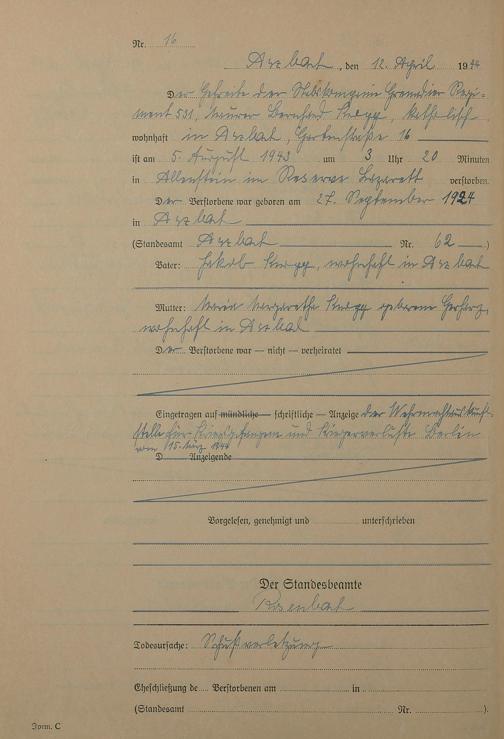 Nr. 16
Arzbach, den 12. April 1944
Der Gefreite der Stabskompanie Grenadier Regi-
ment 531, Maurer Bernhard Knopp, katholisch
wohnhaft in Arzbach, Gartenstraße 16
ist am 5. August 1943 um 3 Uhr 20 Minuten
in Allenstein im Reserve Lazarett verstorben.
Der Verstorbene war geboren am 27. September 1924
in Arzbach
(Standesamt Arzbach Nr. 62)
Vater: Jakob Knopp, wohnhaft in Arzbach
Mutter: Maria Margaretha Knopp geborene
wohnhaft in Arzbach
Der Verstorbene war — nicht — verheiratet
Eingetragen auf mündliche — schriftliche — Anzeige der Wehrmachtauskunft-
stelle für Kriegsgefangene und Kriegerverluste Berlin
vom 15. März 1944
D Anzeigende
Vorgelesen, genehmigt und unterschrieben
Der Standesbeamte
Todesursache: Schußverletzung
Eheschließung de Verstorbenen am in
(Standesamt Nr. ).
Form. C